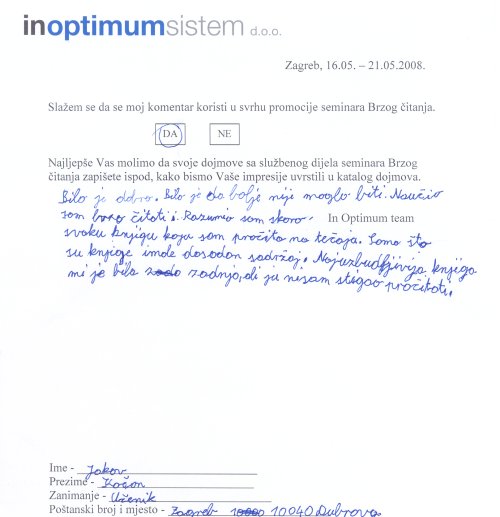 inoptimumsistem d.o.o.
Zagreb, 16.05. – 21.05.2008.
Slažem se da se moj komentar koristi u svrhu promocije seminara Brzog čitanja.
DA NE
Najljepše Vas molimo da svoje dojmove sa službenog dijela seminara Brzog
čitanja zapišete ispod, kako bismo Vaše impresije uvrstili u katalog dojmova.
Bilo je dobro. Bilo je da bolje nije moglo biti. Naučio
som brzo čitati i. Razumio sam skoro. In Optimum team
svaku knjigu koju sam pročito na tečaja. Samo što
su knjige imale dosadan sadržaj. Najuzbudljivija knjiga
mi je bila zadnja, ali ju nisam stigao pročitati.
Ime - Jakov
Prezime -
Zanimanje - Učenik
Poštanski broj i mjesto - Zagreb 10040 Dubrava